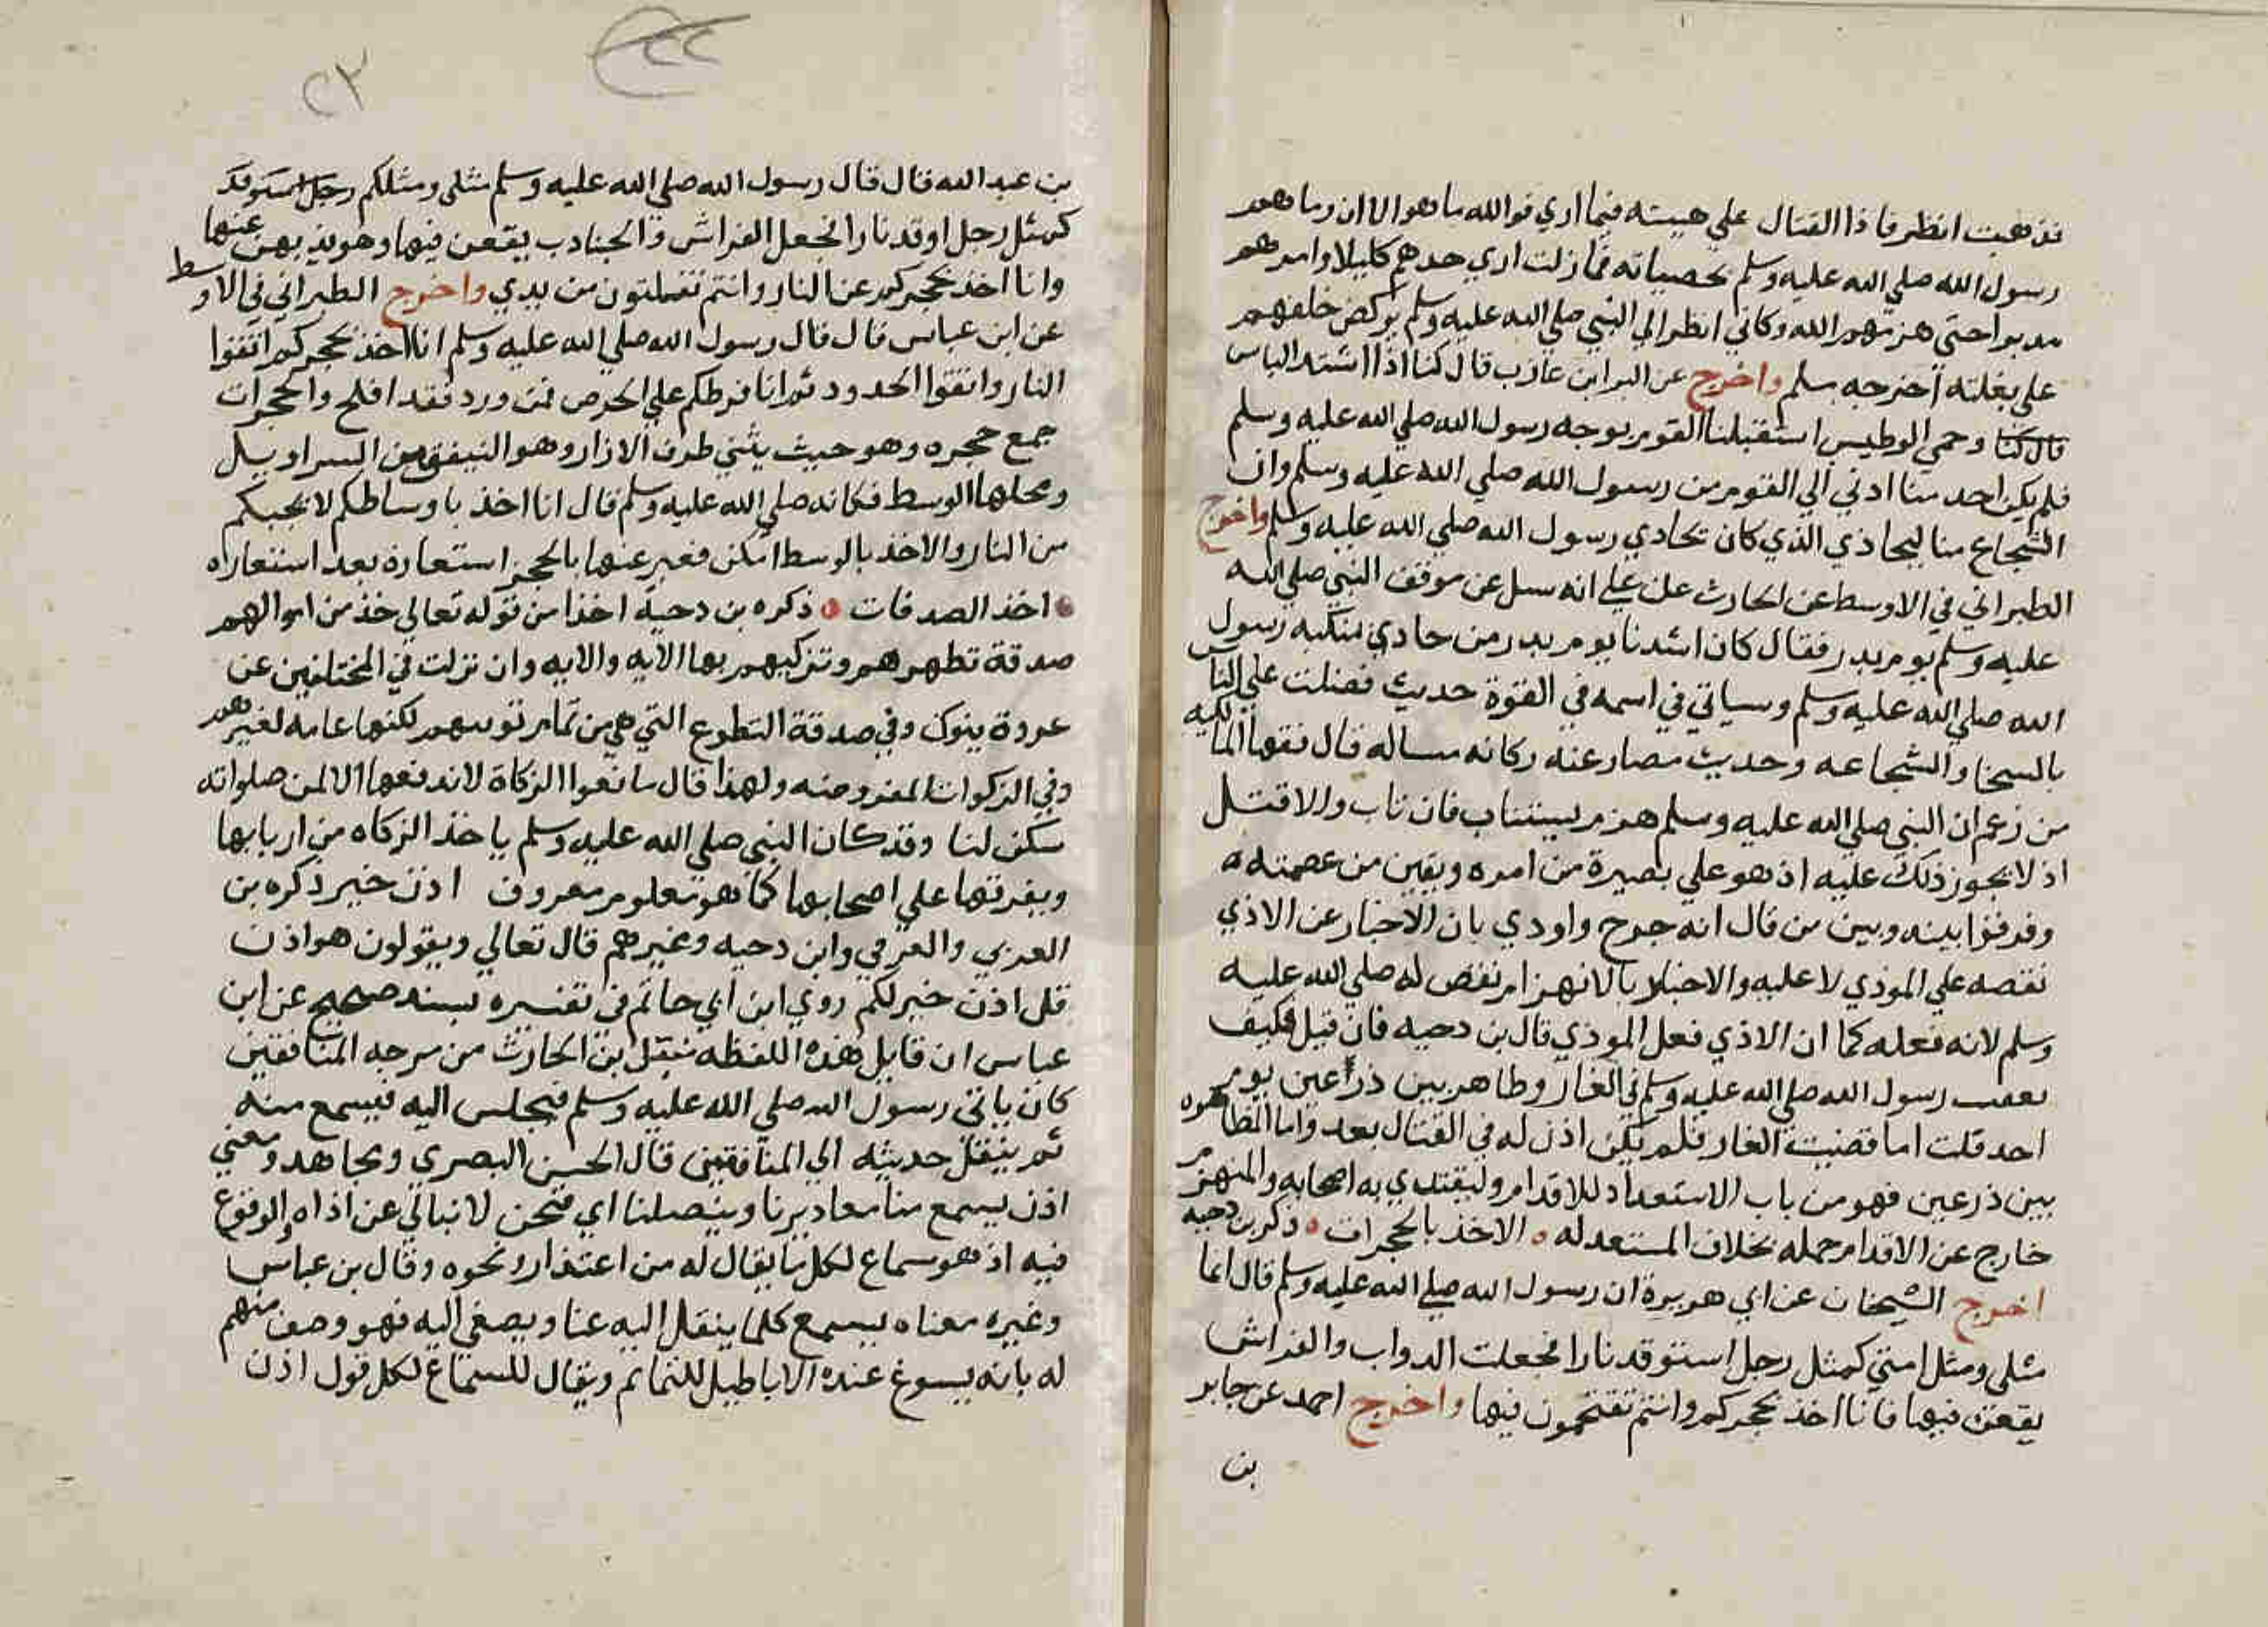 فذهبت انظر فاذا القتال علي هيئته فيما اري فوالله ما هو الا ان رماهم
رسول الله صلي الله عليه وسلم بحصياته فما زلت اري حدهم كليلا وامرهم
مدبرا حتي هزمهم الله وكاني انظر الي النبي صلي الله عليه وسلم يركض خلفهم
علي بغلته اخرجه مسلم واخرج عن البرا بن عازب قال كنا اذا اشتد الباس
قال كنا وحمي الوطيس استقبلنا القوم بوجه رسول الله صلي الله عليه وسلم
فلم يكن احد منا ادني الي القوم من رسول الله صلي الله عليه وسلم وان
الشجاع منا ليحاذي الذي كان يحاذي رسول الله صلي الله عليه وسلم واخرج
الطبراني في الاوسط عن الحارث عن علي انه سيل عن موقف النبي صلي الله
عليه وسلم يوم بدر فقال كان اشدنا يوم بدر من حاذي منكبه رسول
الله صلي الله عليه وسلم وسياتي في اسمه في القوة حديث فضلت علي الناس
بالسخا والشجاعه وحديث مصارعته ركانه مساله قال فقها المالكيه
من زعم ان النبي صلي الله عليه وسلم هزم يستتاب فان تاب والا قتل
اذ لا يجوز ذلك عليه اذ هو علي بصيرة من امره ويقين من عصمته
وفرقوا بينه وبين من قال انه جرح واوذي بان الاخبار عن الاذي
نقصه علي الموذي لا عليه والاخبار بالانهزام نقص له صلي الله عليه
وسلم لانه فعله كما ان الاذي فعل الموذي قال بن دحيه فان قيل فكيف
رسول الله صلي الله عليه وسلم في الغار وظاهر بين ذرعين يوم
احد قلت اما قضية الغار فلم يكن اذن له في القتال بعد واما المظاهره
بين ذرعين فهو من باب الاستعداد للاقدام وليقتدي به اصحابه والمنهزم
خارج عن الاقدام جمله بخلاف المستعد له الاخذ بالحجرات ذكره بن دحيه
اخرج الشيخان عن ابي هريرة ان رسول الله صلي الله عليه وسلم قال انما
مثلي ومثل امتي كمثل رجل استوقد نارا فجعلت الدواب والفراش
يقعن فيها فانا اخذ بحجزكم وانتم تقتحمون فيها واخرج احمد عن جابر
بن
٢٢
٢٣
بن عبد الله قال قال رسول الله صلي الله عليه وسلم مثلي ومثلكم رجل استوقد
كمثل رجل اوقد نارا فجعل الفراش والجنادب يقعن فيها وهو يذبهن عنها
وانا اخذ بحجزكم عن النار وانتم تفلتون من يدي واخرج الطبراني في الاوسط
عن ابن عباس قال قال رسول الله صلي الله عليه وسلم انا اخذ بحجزكم اتقوا
النار واتقوا الحدود ثم انا فرطكم علي الحوض فمن ورد فقد افلح والحجزات
جمع حجزه وهو حيث يثني طرف الازار وهو النيفق من السراويل
ومحلها الوسط فكانه صلي الله عليه وسلم قال انا اخذ باوساطكم لانجيكم
من النار والاخذ بالوسط امكن فعبر عنها بالحجز استعارة بعد استعاره
اخذ الصدقات ذكره بن دحية اخذا من قوله تعالي خذ من اموالهم
صدقة تطهرهم وتزكيهم بها الايه والايه وان نزلت في المختلفين عن
غزوة تبوك وفي صدقة التطوع التي هي من تمام توبتهم لكنها عامه لغيرهم
وفي الزكوات المفروضه ولهذا قال مانعوا الزكاة لا ندفعها الا لمن صلواته
سكن لنا وقد كان النبي صلي الله عليه وسلم ياخذ الزكاه من اربابها
ويفرقها علي اصحابها كما هو معلوم معروف اذن خير ذكره بن
العربي والعزفي وابن دحيه وغيرهم قال تعالي ويقولون هو اذن
قل اذن خير لكم روي ابن ابي حاتم في تفسيره بسند صحيح عن ابن
عباس ان قايل هذه اللفظه نبتل بن الحارث من سرجه المنافقين
كان ياتي رسول الله صلي الله عليه وسلم فيجلس اليه فيسمع منه
ثم ينقل حديثه الي المنافقين قال الحسن البصري ومجاهد ومعني
اذن يسمع منا معاذيرنا وينصلنا اي فنحن لا نبالي عن اذاه والوقوع
فيه اذ هو سماع لكل ما يقال له من اعتذار ونحوه وقال بن عباس
وغيره معناه يسمع كلما ينقل اليه عنا ويصغي اليه فهو وصف منهم
له بانه يسوغ عنده الاباطيل للنمائم ويقال للسماع لكل قول اذن